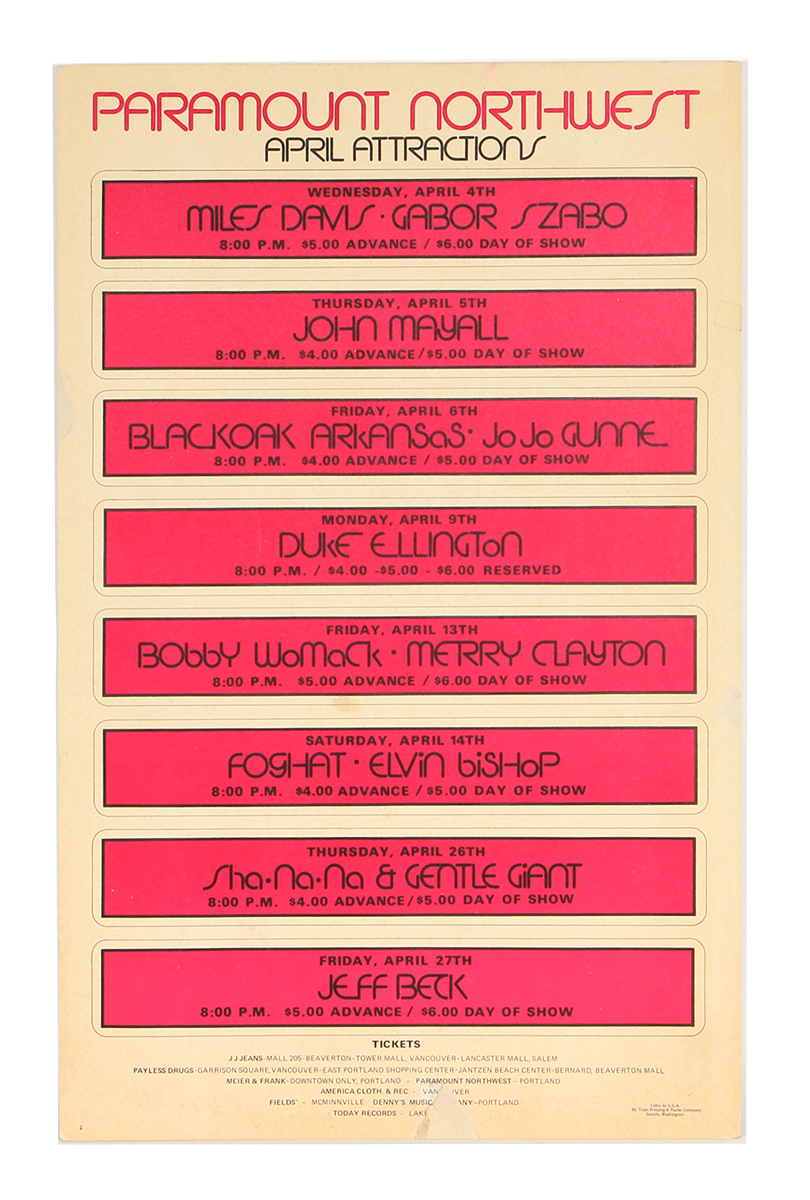 PARAMOUNT NORTHWEST
APRIL ATTRACTIONS
WEDNESDAY, APRIL 4TH
MILES DAVIS · GABOR SZABO
8:00 P.M. $5.00 ADVANCE / $6.00 DAY OF SHOW
THURSDAY, APRIL 5TH
JOHN MAYALL
8:00 P.M. $4.00 ADVANCE/$5.00 DAY OF SHOW
FRIDAY, APRIL 6TH
BLACKOAK ARkANSaS · JoJo GUNNE
8:00 P.M. $4.00 ADVANCE / $5.00 DAY OF SHOW
MONDAY, APRIL 9TH
DUkE ELLINGToN
8:00 P.M. / $4.00 -$5.00 - $6.00 RESERVED
FRIDAY, APRIL 13TH
BObbY WoMaCk · MERRY CLAYTON
8:00 P.M. $5.00 ADVANCE / $6.00 DAY OF SHOW
SATURDAY, APRIL 14TH
FOGHAT · ELViN biSHoP
8:00 P.M. $4.00 ADVANCE / $5.00 DAY OF SHOW
THURSDAY, APRIL 26TH
Sha·Na·Na & GENTLE GiANT
8:00 P.M. $4.00 ADVANCE/$5.00 DAY OF SHOW
FRIDAY, APRIL 27TH
JEFF BECK
8:00 P.M. $5.00 ADVANCE / $6.00 DAY OF SHOW
TICKETS
JJ JEANS-MALL 205-BEAVERTON-TOWER MALL, VANCOUVER-LANCASTER MALL, SALEM
PAYLESS DRUGS-GARRISON SQUARE, VANCOUVER-EAST PORTLAND SHOPPING CENTER-JANTZEN BEACH CENTER-BERNARD, BEAVERTON MALL
MEIER & FRANK-DOWNTOWN ONLY, PORTLAND - PARAMOUNT NORTHWEST - PORTLAND
AMERICA CLOTH. & REC - VAN UVER
FIELDS' - MCMINNVILLE DENNY'S MUSIC ANY-PORTLAND
TODAY RECORDS - LAKE
Litho in U.S.A.
By Tram Printing & Poster Company
Seattle, Washington